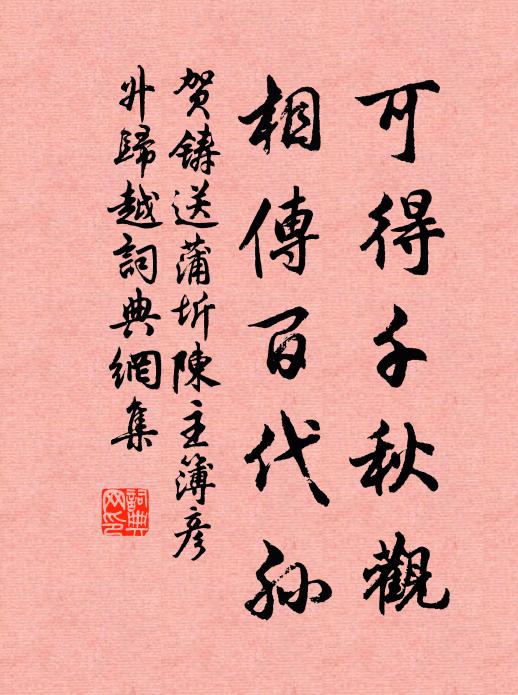 可得千秋觀
相傳百代孙
贺鑄送蒲圻陳主簿彦
升歸越詞典網集
詞典网印